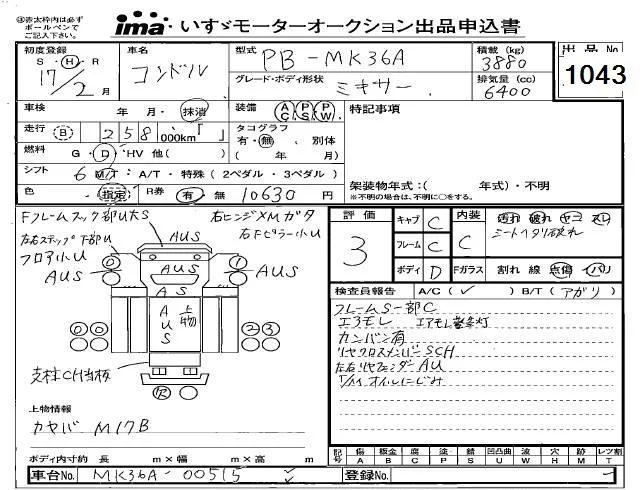 赤太枠内は必ずボールペンでご記入下さい。
ima いすゞモーターオークション出品申込書
初度登録 S・H・R 17/2月
車名 コンドル
型式 PB-MK36A
積載(kg) 3880
出品No 1043
グレード・ボディ形状 ミキサー
排気量(cc) 6400
車検 年 月・抹消
装備 AC PS PW
特記事項
走行 B 258,000km「 」
タコグラフ 有・無・別体 ( 年 月)
燃料 G・D・HV 他( )
シフト 6 M/T・A/T・特殊(2ペダル・3ペダル)
架装物年式:( 年式)・不明
(※不明の場合は、不明に○をする。)
色 指定 R券 有・無 10630 円
Fフレームフック部U大S 右ヒンジXMガタ
左右ステップ下部U 右Fピラー小U
フロア小U
AUS AUS AUS
AUS
AS
AUS 上物
支柱CH当板
欠
上物情報
カヤバ M17B
ボディ内寸約 長 m×幅 m×高 m
車台No. MK36A-00515
評価 3
キャブ C 内装 C 汚れ 破れ ヤコ スレ
シートヘタリ破れ
フレーム C
ボディ D Fガラス 割れ 線 点傷 イバリ
検査員報告 A/C(✓) B/T(アガリ)
フレームS一部C
エアモレ エアモレ警告灯
カンバン有
リヤクロスメンバーSCH
左右リヤフェンダーAU
T/Mオイルにじみ
記号 傷A 板金B 腐C 塗P 錆S 凹凸曲U 波W 穴H 跡M レツ割T
登録No.